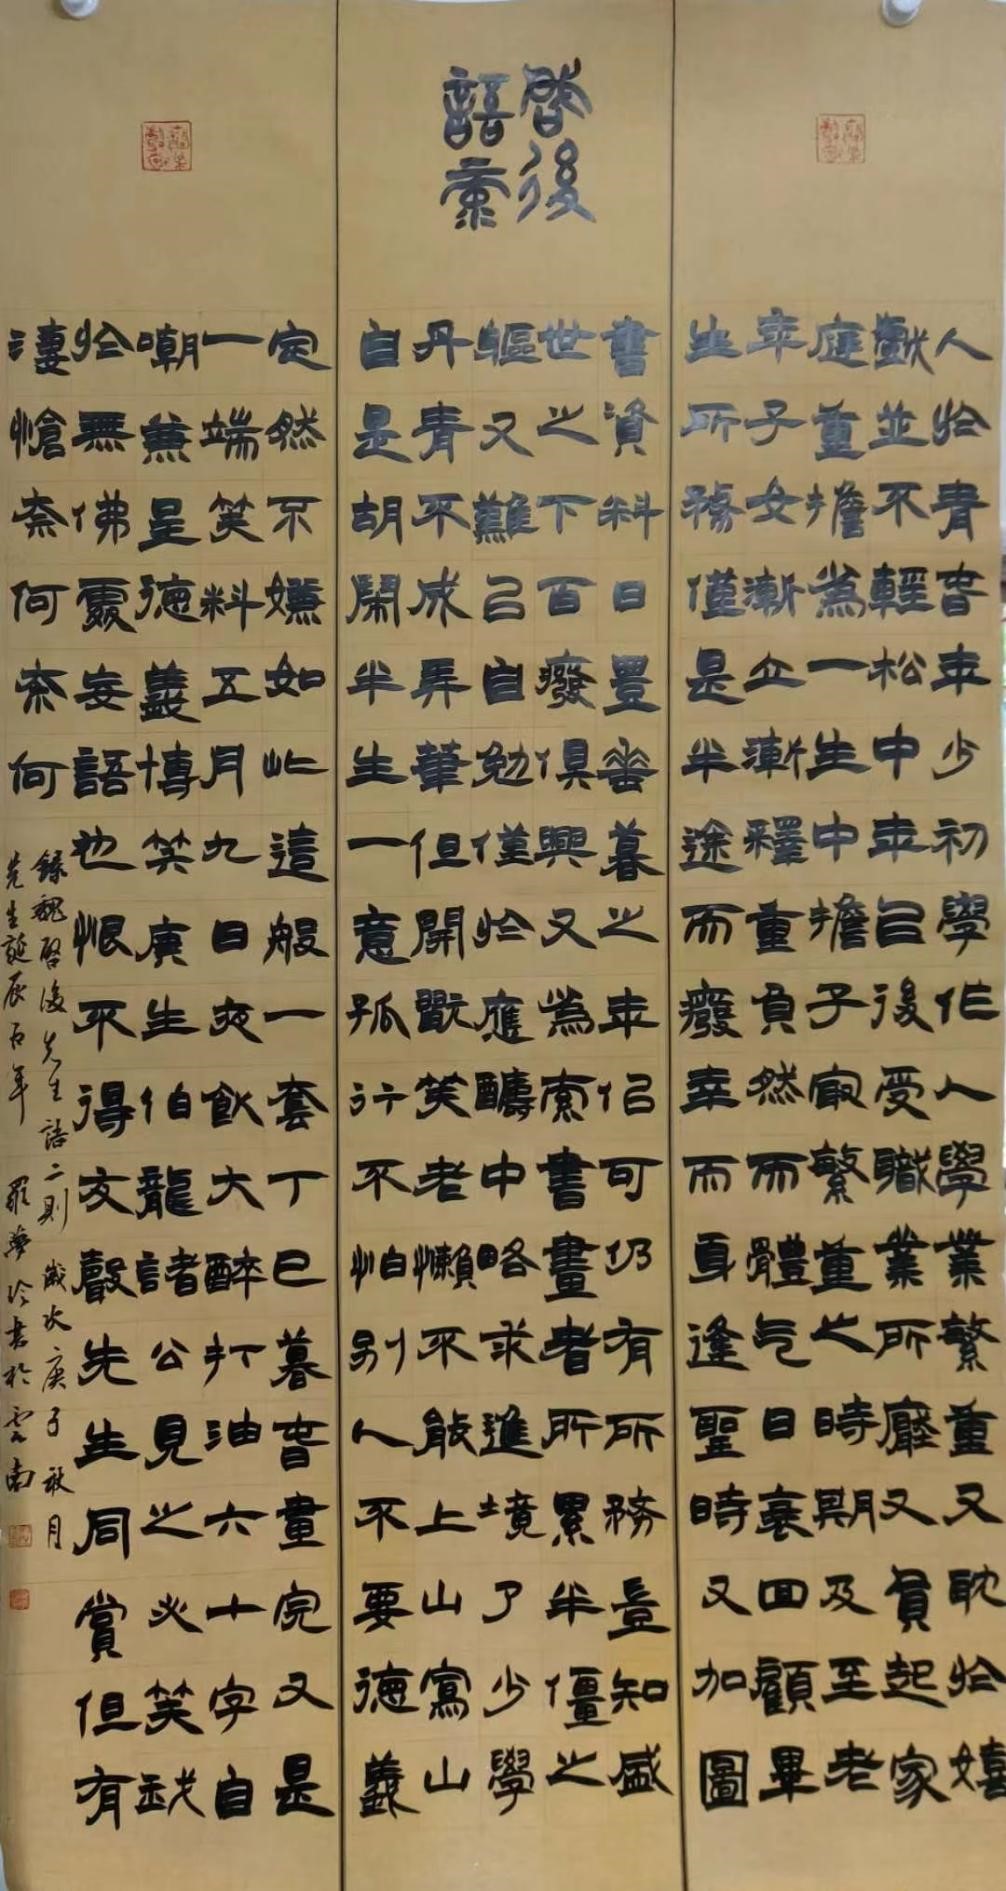 啓後
人於青春年少初學作人學業繁重又耽於嬉
戲並不輕松中年已後受職業所廹又負起家
庭重擔為一生中擔子最繁重之時期及至老
年子女漸立漸釋重負然而體气日衰回顧畢
生所務僅是半途而廢幸而身逢聖時又加圖
書資料日豐垂暮之年佀可仍有所務豈知盛
世之下百廢俱興又為索書畫者所累半僵之
軀又難已自勉僅於應酬中略求進境了少學
丹青不成弄筆但開戲笑老懶不能上山寫山
自是胡鬧半生一意孤行不怕別人不要德義
定然不嫌如此這般一套丁巳暮春畫完又是
一端笑料五月九日夜飲大醉打油六十字自
嘲兼呈德義博笑庚生伯龍諸公見之必笑我
於無佛處妄語也恨不得文聲先生同賞但有
淒愴奈何奈何
錄魏啓後先生語二則歲次庚子月
先生誕辰百年羅夢冷書於雲南